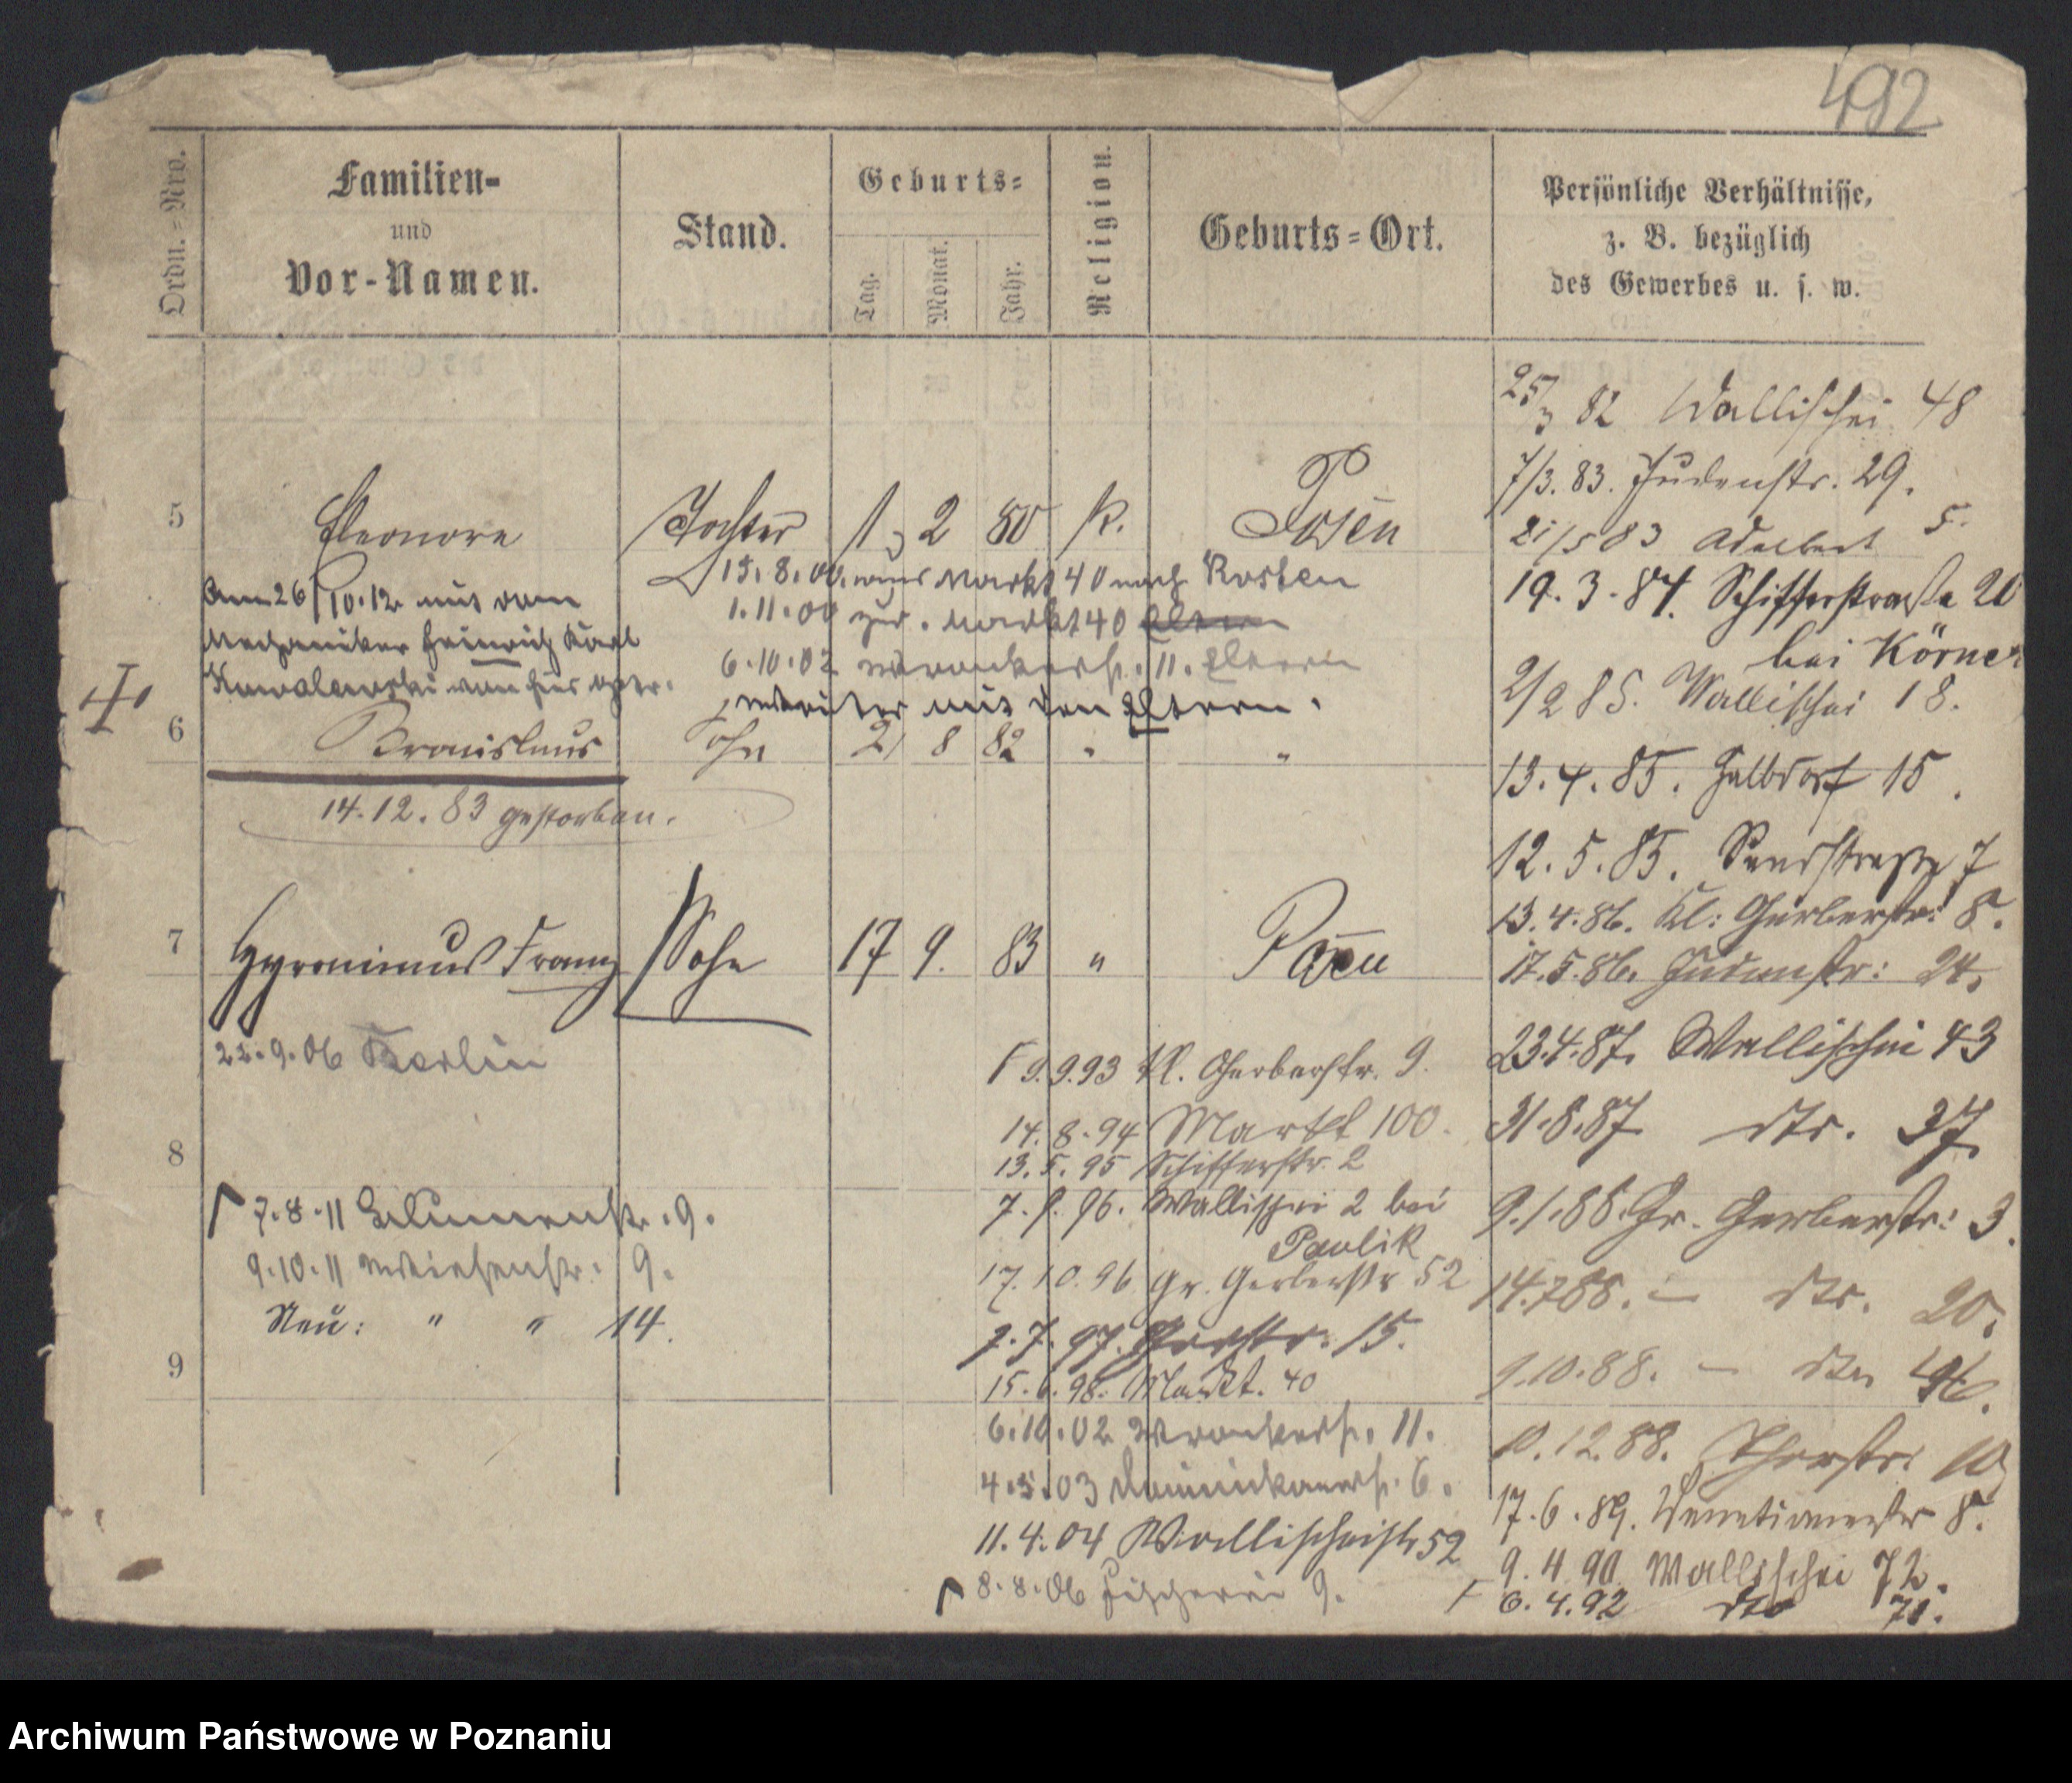 492
Ordn.=Nro.
Familien-
und
Vor-Namen.
Stand.
Geburts=
Tag.
Monat.
Jahr.
Religion.
Geburts=Ort.
Persönliche Verhältnisse,
z. B. bezüglich
des Gewerbes u. s. w.
5 Eleonore Tochter 2 80 k. Posen
15.8.00 aus Markt 40 nach Kosten
1.11.00 zur. Markt 40 Eltern
6.10.02 Wronkerstr. 11. Eltern
weiter mit den Eltern.
Am 26/10.12 mit dem
Mechaniker Heinrich Karl
Kowalewski von hier
6 Bronislaus Sohn 21 8 82 " "
14.12.83 gestorben.
7 Hyronimus Franz Sohn 17 9. 83 " Posen
22.9.06 Berlin
8
7.8.11 Blumenstr. 9.
9.10.11 Wiesenstr. 9.
Neu: " " 14.
9
9.9.93 Kl. Gerberstr. 9.
14.8.94 Markt 100.
13.5.95 Schifferstr. 2
96. Wallischei 2 bei
Pawlik
17.10.96 Gr. Gerberstr 52
7.7.97. 15.
15.6.98. Markt. 40
6.10.02 Wronkerstr. 11.
4.5.03 Dominikanerstr. 6.
11.4.04 Wallischeistr 52
8.8.06 Fischerei 9.
25/3 82 Wallischei 48
7/3. 83. Judenstr. 29.
21/5 83 Adalbert 5.
19.3.84. Schifferstraße 20
bei Körner
2/2 85. Wallischei 18.
13.4.85. Halbdorf 15.
12.5.85. Sandstraße 7
13.4.86. Kl: Gerberstr: 8.
17.5.86. Judenstr: 24.
23.4.87. Wallischei 43
31.8.87 dto. 37
9.1.88. Gr. Gerberstr: 3.
14.7.88. — dto. 20.
9.10.88. — dto 46.
10.12.88. Thorstr. 10
17.6.89. Venetianerstr 8.
9.4.90 Wallischei 72.
6.4.92 dto 71.
Archiwum Państwowe w Poznaniu